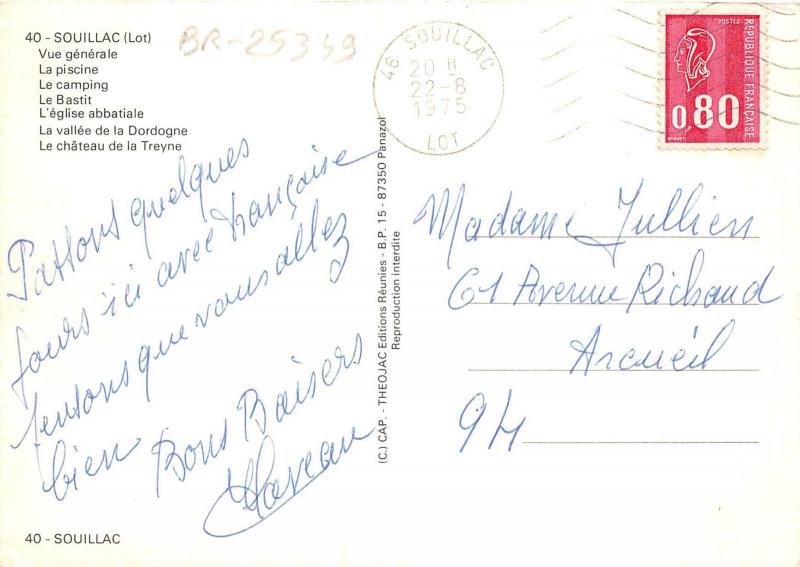 40 - SOUILLAC (Lot)
Vue générale
La piscine
Le camping
Le Bastit
L'église abbatiale
La vallée de la Dordogne
Le château de la Treyne
BR-25349
46 SOUILLAC
20 H
22-8
1975
LOT
POSTES
REPUBLIQUE FRANÇAISE
0,80
Passons quelques
jours ici avec Françoise
pensons que vous allez
bien Bons Baisers
(C.) CAP. - THEOJAC Editions Réunies - B.P. 15 - 87350 Panazol
Reproduction interdite
Madame Jullien
61 Avenue Richaud
Arcueil
94
40 - SOUILLAC